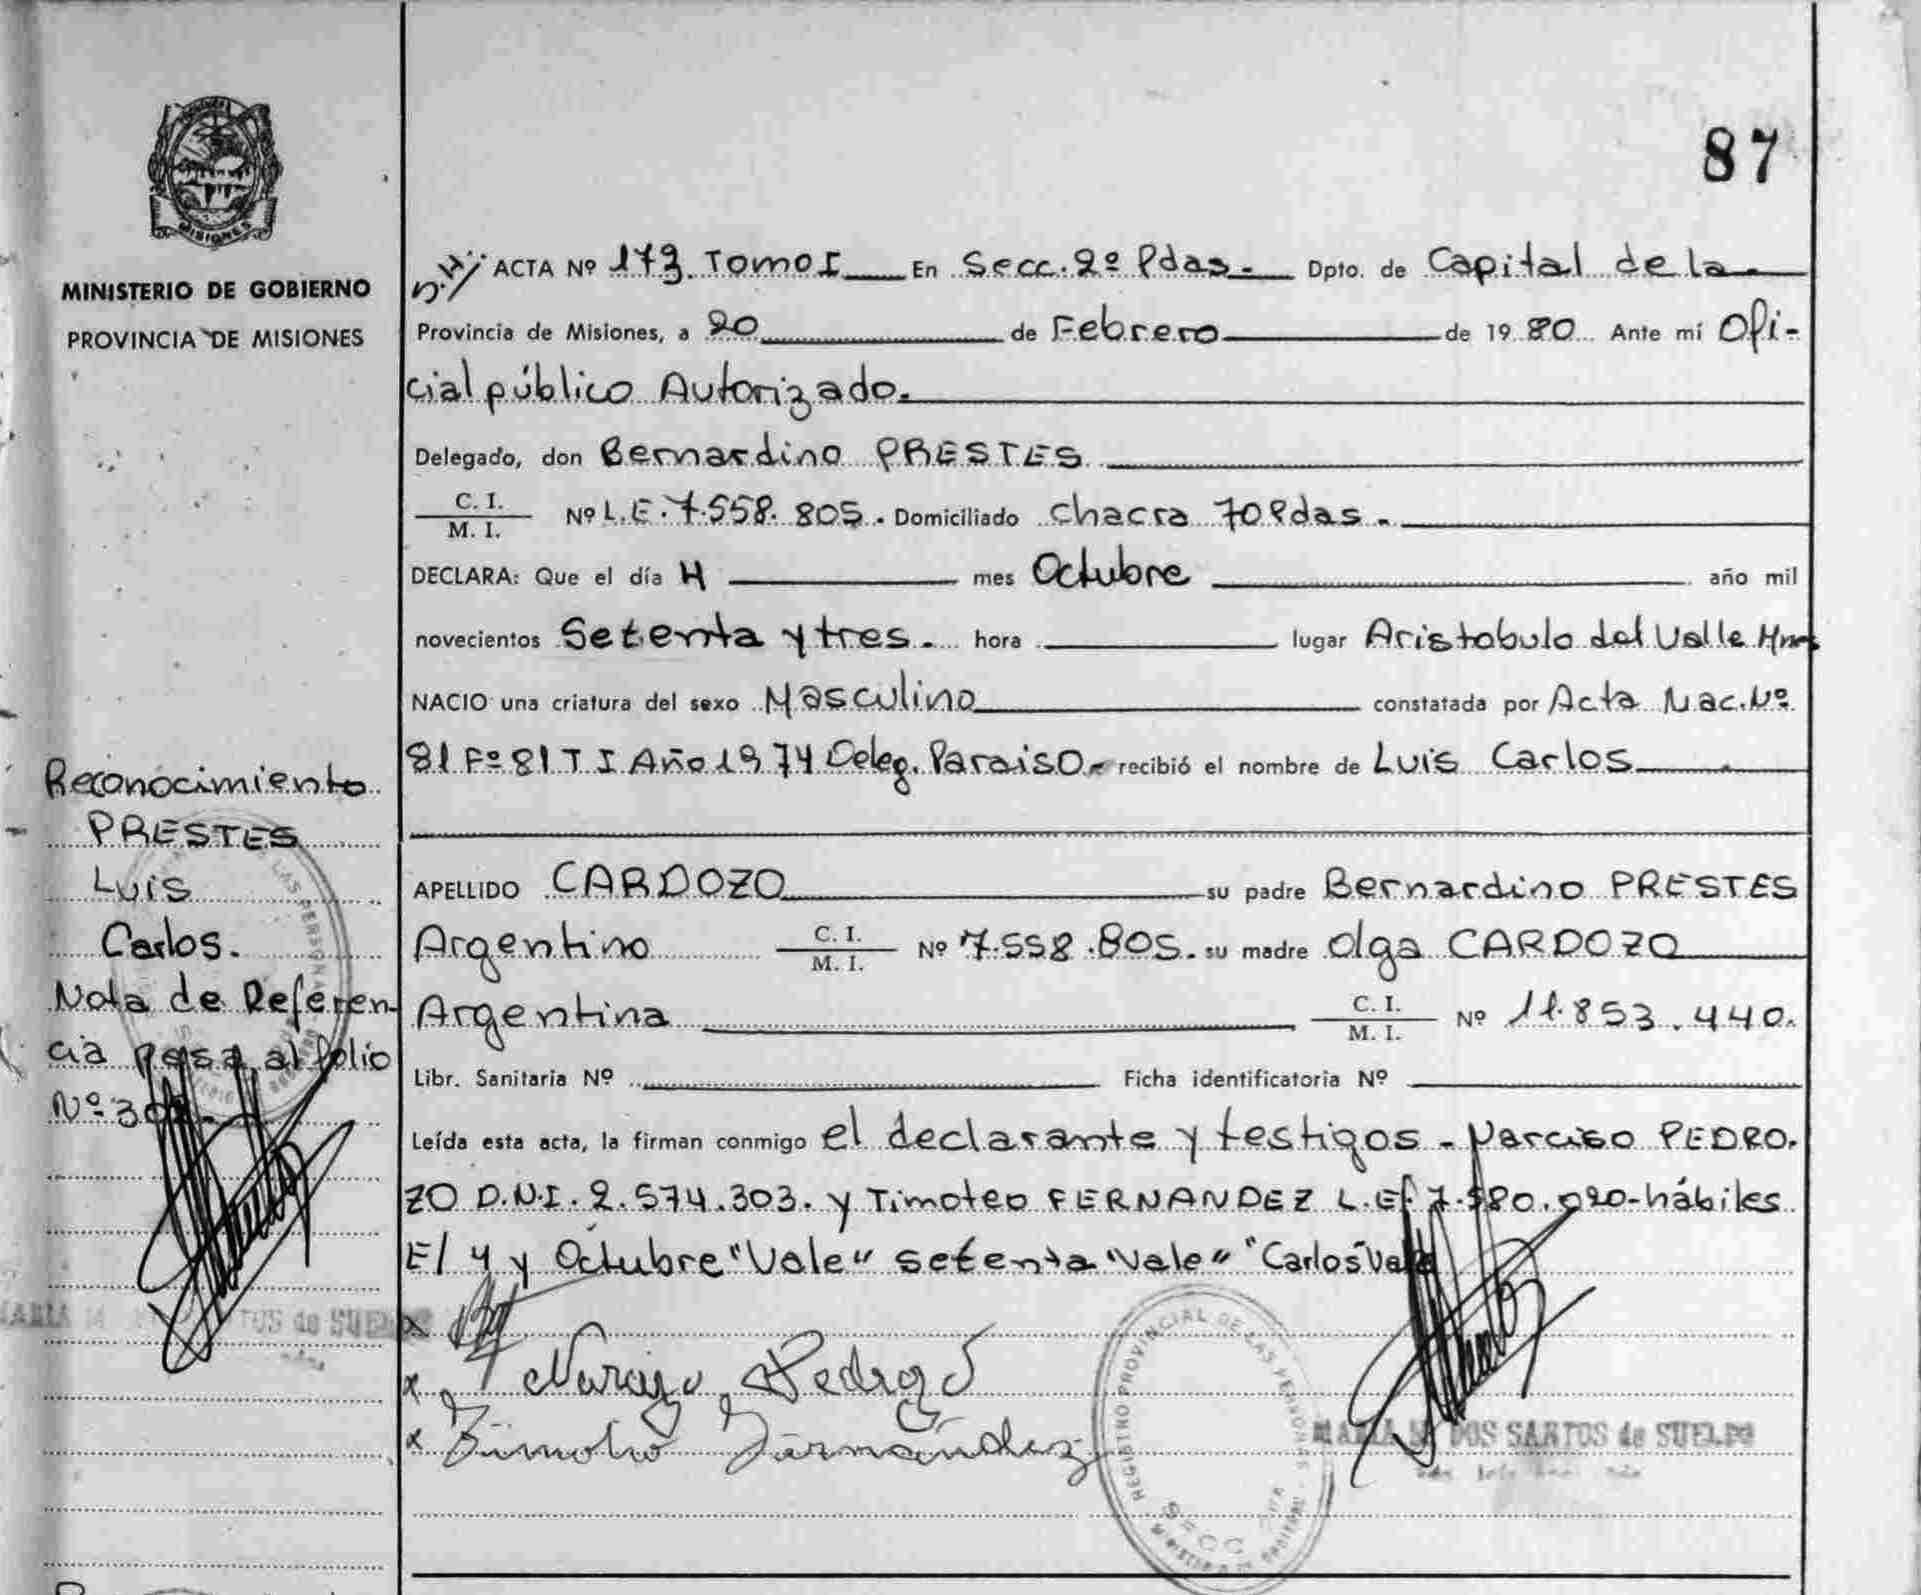 87
MISIONES
MINISTERIO DE GOBIERNO
PROVINCIA DE MISIONES
ACTA Nº 173 Tomo I En Secc. 2º Pdas.- Dpto. de Capital de la
Provincia de Misiones, a 20 de Febrero de 1980 Ante mí Ofi-
cial público Autorizado.
Delegado, don Bernardino PRESTES
C. I.
M. I. Nº L.E. 7.558.805. Domiciliado chacra 70 Pdas.-
DECLARA: Que el día 4 mes Octubre año mil
novecientos Setenta y tres. hora lugar Aristobulo del Valle Mnes
NACIO una criatura del sexo Masculino constatada por Acta Nac. Nº
81 Fº 81 T I Año 1974 Deleg. Paraiso.- recibió el nombre de Luis Carlos
APELLIDO CARDOZO su padre Bernardino PRESTES
Argentino C. I. M. I. Nº 7.558.805. su madre Olga CARDOZO
Argentina C. I. M. I. Nº 11.853.440.
Libr. Sanitaria Nº Ficha identificatoria Nº
Leída esta acta, la firman conmigo el declarante y testigos - Narciso PEDRO.
ZO D.N.I. 2.574.303. y Timoteo FERNANDEZ L.E. 7.580.020-hábiles
E/ 4 y Octubre "Vale" setenta "Vale" "Carlos" Vale
x
x Narciso Pedrozo
x Timoteo Fernández
REGISTRO PROVINCIAL DE LAS PERSONAS
SECC
MARIA M DOS SANTOS de SUELDO
Reconocimiento
PRESTES
Luis
Carlos.
Nota de Referen-
cia pasa al folio
Nº 30
MARIA M TOS de SUEL